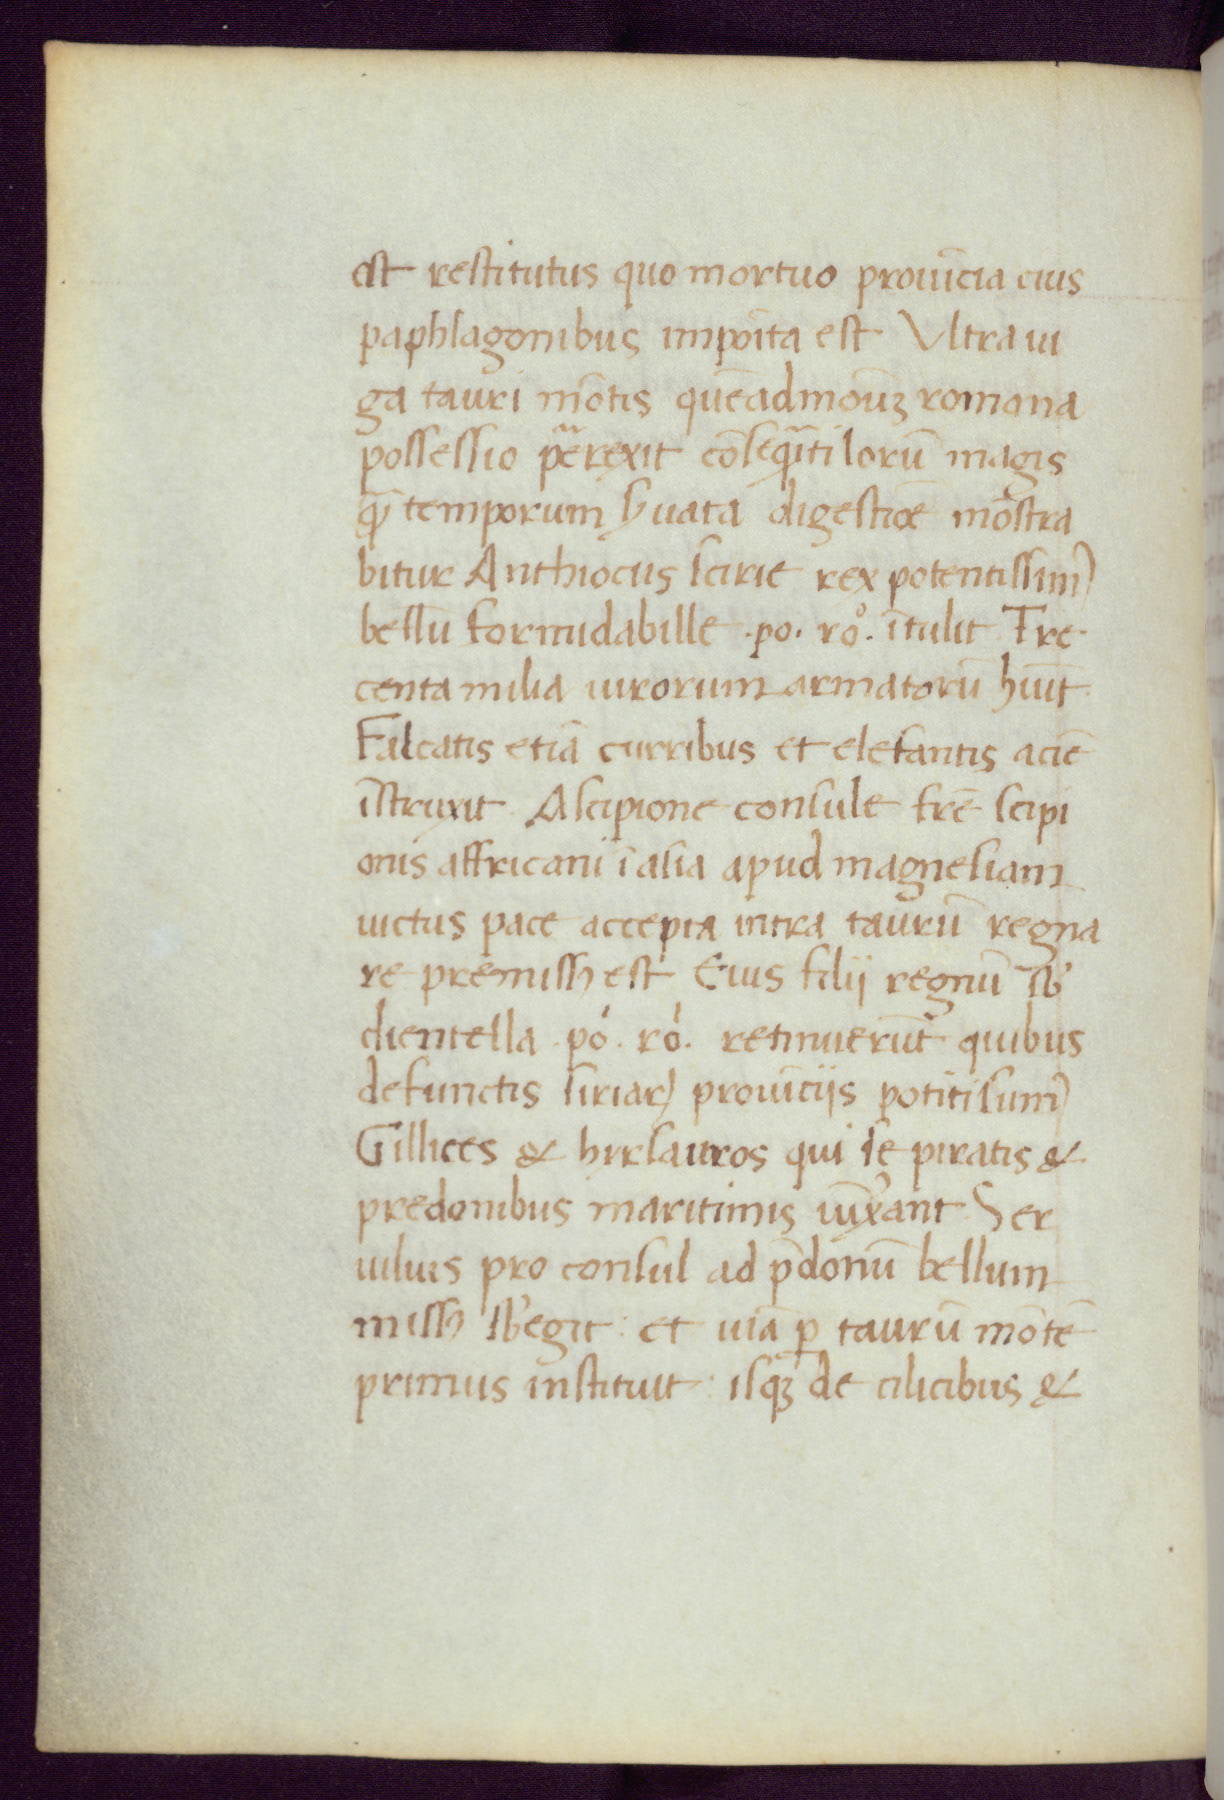 est restitutus quo mortuo prouīcia eius
paphlagonibus imp̄oita est Vltra iu
ga tauri mōtis quēadmoūꝫ romana
possessio perrexit cōseq̄nti lorū magis
q̄ temporum ẜuata digestiōe mōstra
bitur Anthiocus sirie rex potentissimꝰ
bellū formidabille .po. ro. ītulit Tre
centa milia uirorum armatorū hūit
Falcatis etiā curribus et elefantis aciē
īstruxit Ascipione consule frē scipi
onis affricani ī asia apud magnesiam
uictus pace accepta intra taurū regna
re premissꝰ est Eius filij regnū sb̄
clientella po. ro. retinuerūt quibus
defunctis siriaꝝ prouīcijs potiti sumꝰ
Gillices & hirsauros qui se piratis &
predonibus maritimis iūx̄ant Ser
uiluis pro consul ad p̄donū bellum
missꝰ sb̄egit : et uiā ꝑ taurū mōtē
primus instituit : isqꝫ de cilicibus &